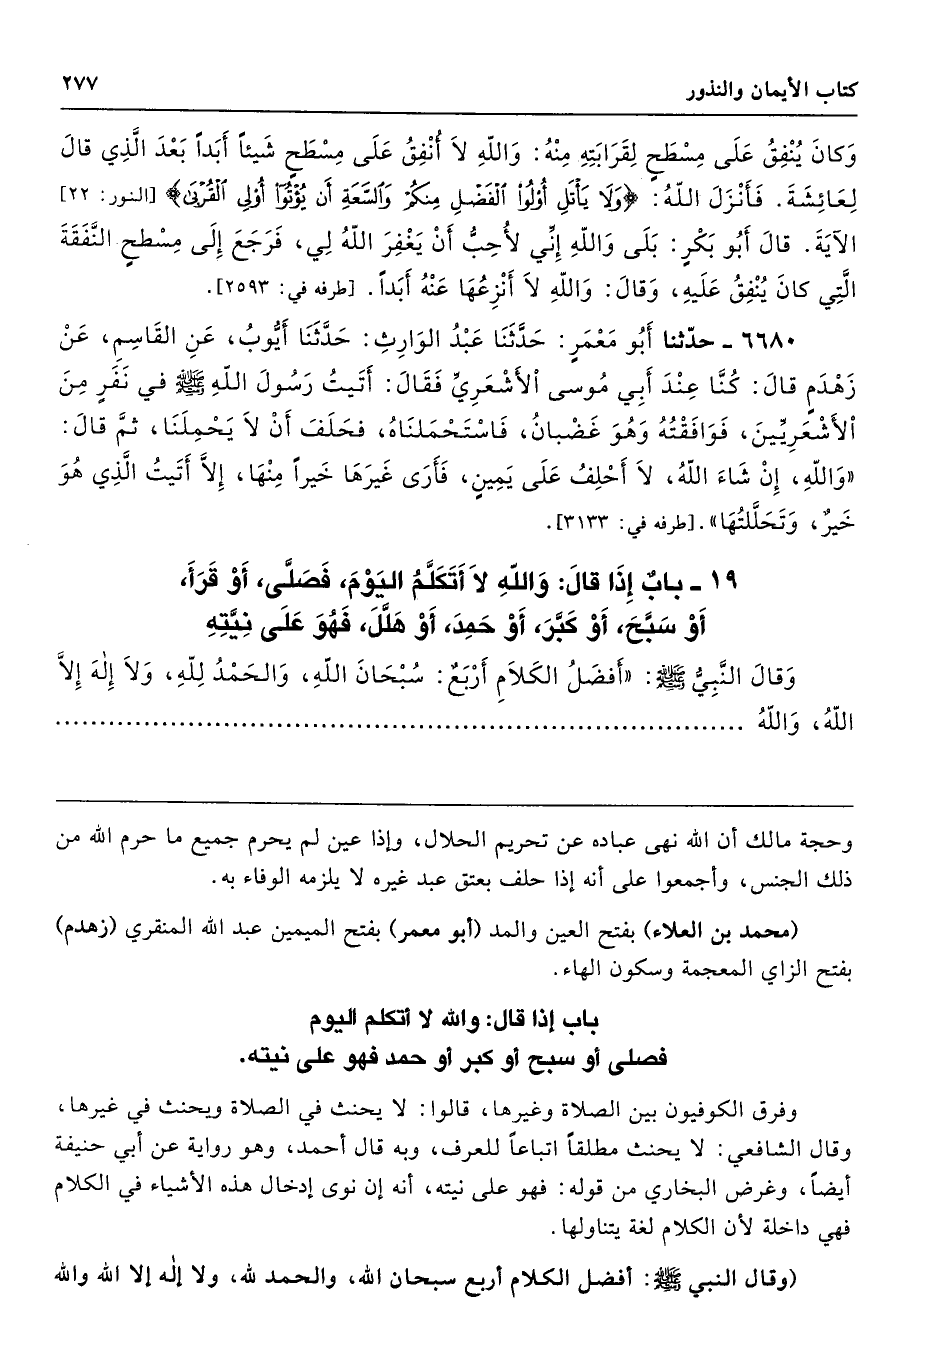 كتاب الأيمان والنذور ٢٧٧
وَكانَ يُنْفِقُ عَلَى مِسْطَحٍ لِقَرَابَتِهِ مِنْهُ: وَاللّهِ لاَ أُنْفِقُ عَلَى مِسْطَحٍ شَيْئاً أَبَداً بَعْدَ الَّذِي قالَ
لِعَائِشَةَ. فَأَنْزَلَ اللّهُ: ﴿وَلَا يَأْتَلِ أُوْلُواْ ٱلْفَضْلِ مِنكُمْ وَٱلسَّعَةِ أَن يُؤْتُوٓاْ أُوْلِى ٱلْقُرْبَىٰ﴾ [النور: ٢٢]
الآيَةَ. قالَ أَبُو بَكْرٍ: بَلَى وَاللّهِ إِنِّي لأُحِبُّ أَنْ يَغْفِرَ اللّهُ لِي، فَرَجَعَ إِلَى مِسْطَحٍ النَّفَقَةَ
الَّتِي كانَ يُنْفِقُ عَلَيهِ، وَقالَ: وَاللّهِ لاَ أَنْزِعُهَا عَنْهُ أَبَداً. [طرفه في: ٢٥٩٣].
٦٦٨٠ ـ حدّثنا أَبُو مَعْمَرٍ: حَدَّثَنَا عَبْدُ الوَارِثِ: حَدَّثَنَا أَيُّوبُ، عَنِ القَاسِمِ، عَنْ
زَهْدَمٍ قالَ: كُنَّا عِنْدَ أَبِي مُوسى الأَشْعَرِيِّ فَقَالَ: أَتَيتُ رَسُولَ اللّهِ ﷺ في نَفَرٍ مِنَ
الأَشْعَرِيِّينَ، فَوَافَقْتُهُ وَهُوَ غَضْبانُ، فَاسْتَحْمَلنَاهُ، فَحَلَفَ أَنْ لاَ يَحْمِلَنَا، ثمَّ قالَ:
«وَاللّهِ، إِنْ شَاءَ اللّهُ، لاَ أَحْلِفُ عَلَى يَمِينٍ، فَأَرَى غَيرَهَا خَيراً مِنْهَا، إِلاَّ أَتَيتُ الَّذِي هُوَ
خَيرٌ، وَتَحَلَّلتُهَا». [طرفه في: ٣١٣٣].
١٩ ـ بابٌ إِذَا قالَ: وَاللّهِ لاَ أَتَكَلَّمُ اليَوْمَ، فَصَلَّى، أَوْ قَرَأَ،
أَوْ سَبَّحَ، أَوْ كَبَّرَ، أَوْ حَمِدَ، أَوْ هَلَّلَ، فَهُوَ عَلَى نِيَّتِهِ
وَقالَ النَّبِيُّ ﷺ: «أَفضَلُ الكَلاَمِ أَرْبَعٌ: سُبْحَانَ اللّهِ، وَالحَمْدُ لِلّهِ، وَلاَ إِلٰهَ إِلاَّ
اللّهُ، وَاللّهُ ..........................................................................
وحجة مالك أن الله نهى عباده عن تحريم الحلال، وإذا عين لم يحرم جميع ما حرم الله من
ذلك الجنس، وأجمعوا على أنه إذا حلف بعتق عبد غيره لا يلزمه الوفاء به.
(محمد بن العلاء) بفتح العين والمد (أبو معمر) بفتح الميمين عبد الله المنقري (زهدم)
بفتح الزاي المعجمة وسكون الهاء.
باب إذا قال: والله لا أتكلم اليوم
فصلى أو سبح أو كبر أو حمد فهو على نيته.
وفرق الكوفيون بين الصلاة وغيرها، قالوا: لا يحنث في الصلاة ويحنث في غيرها،
وقال الشافعي: لا يحنث مطلقاً اتباعاً للعرف، وبه قال أحمد، وهو رواية عن أبي حنيفة
أيضاً، وغرض البخاري من قوله: فهو على نيته، أنه إن نوى إدخال هذه الأشياء في الكلام
فهي داخلة لأن الكلام لغة يتناولها.
(وقال النبي ﷺ: أفضل الكلام أربع سبحان الله، والحمد لله، ولا إلٰه إلا الله والله